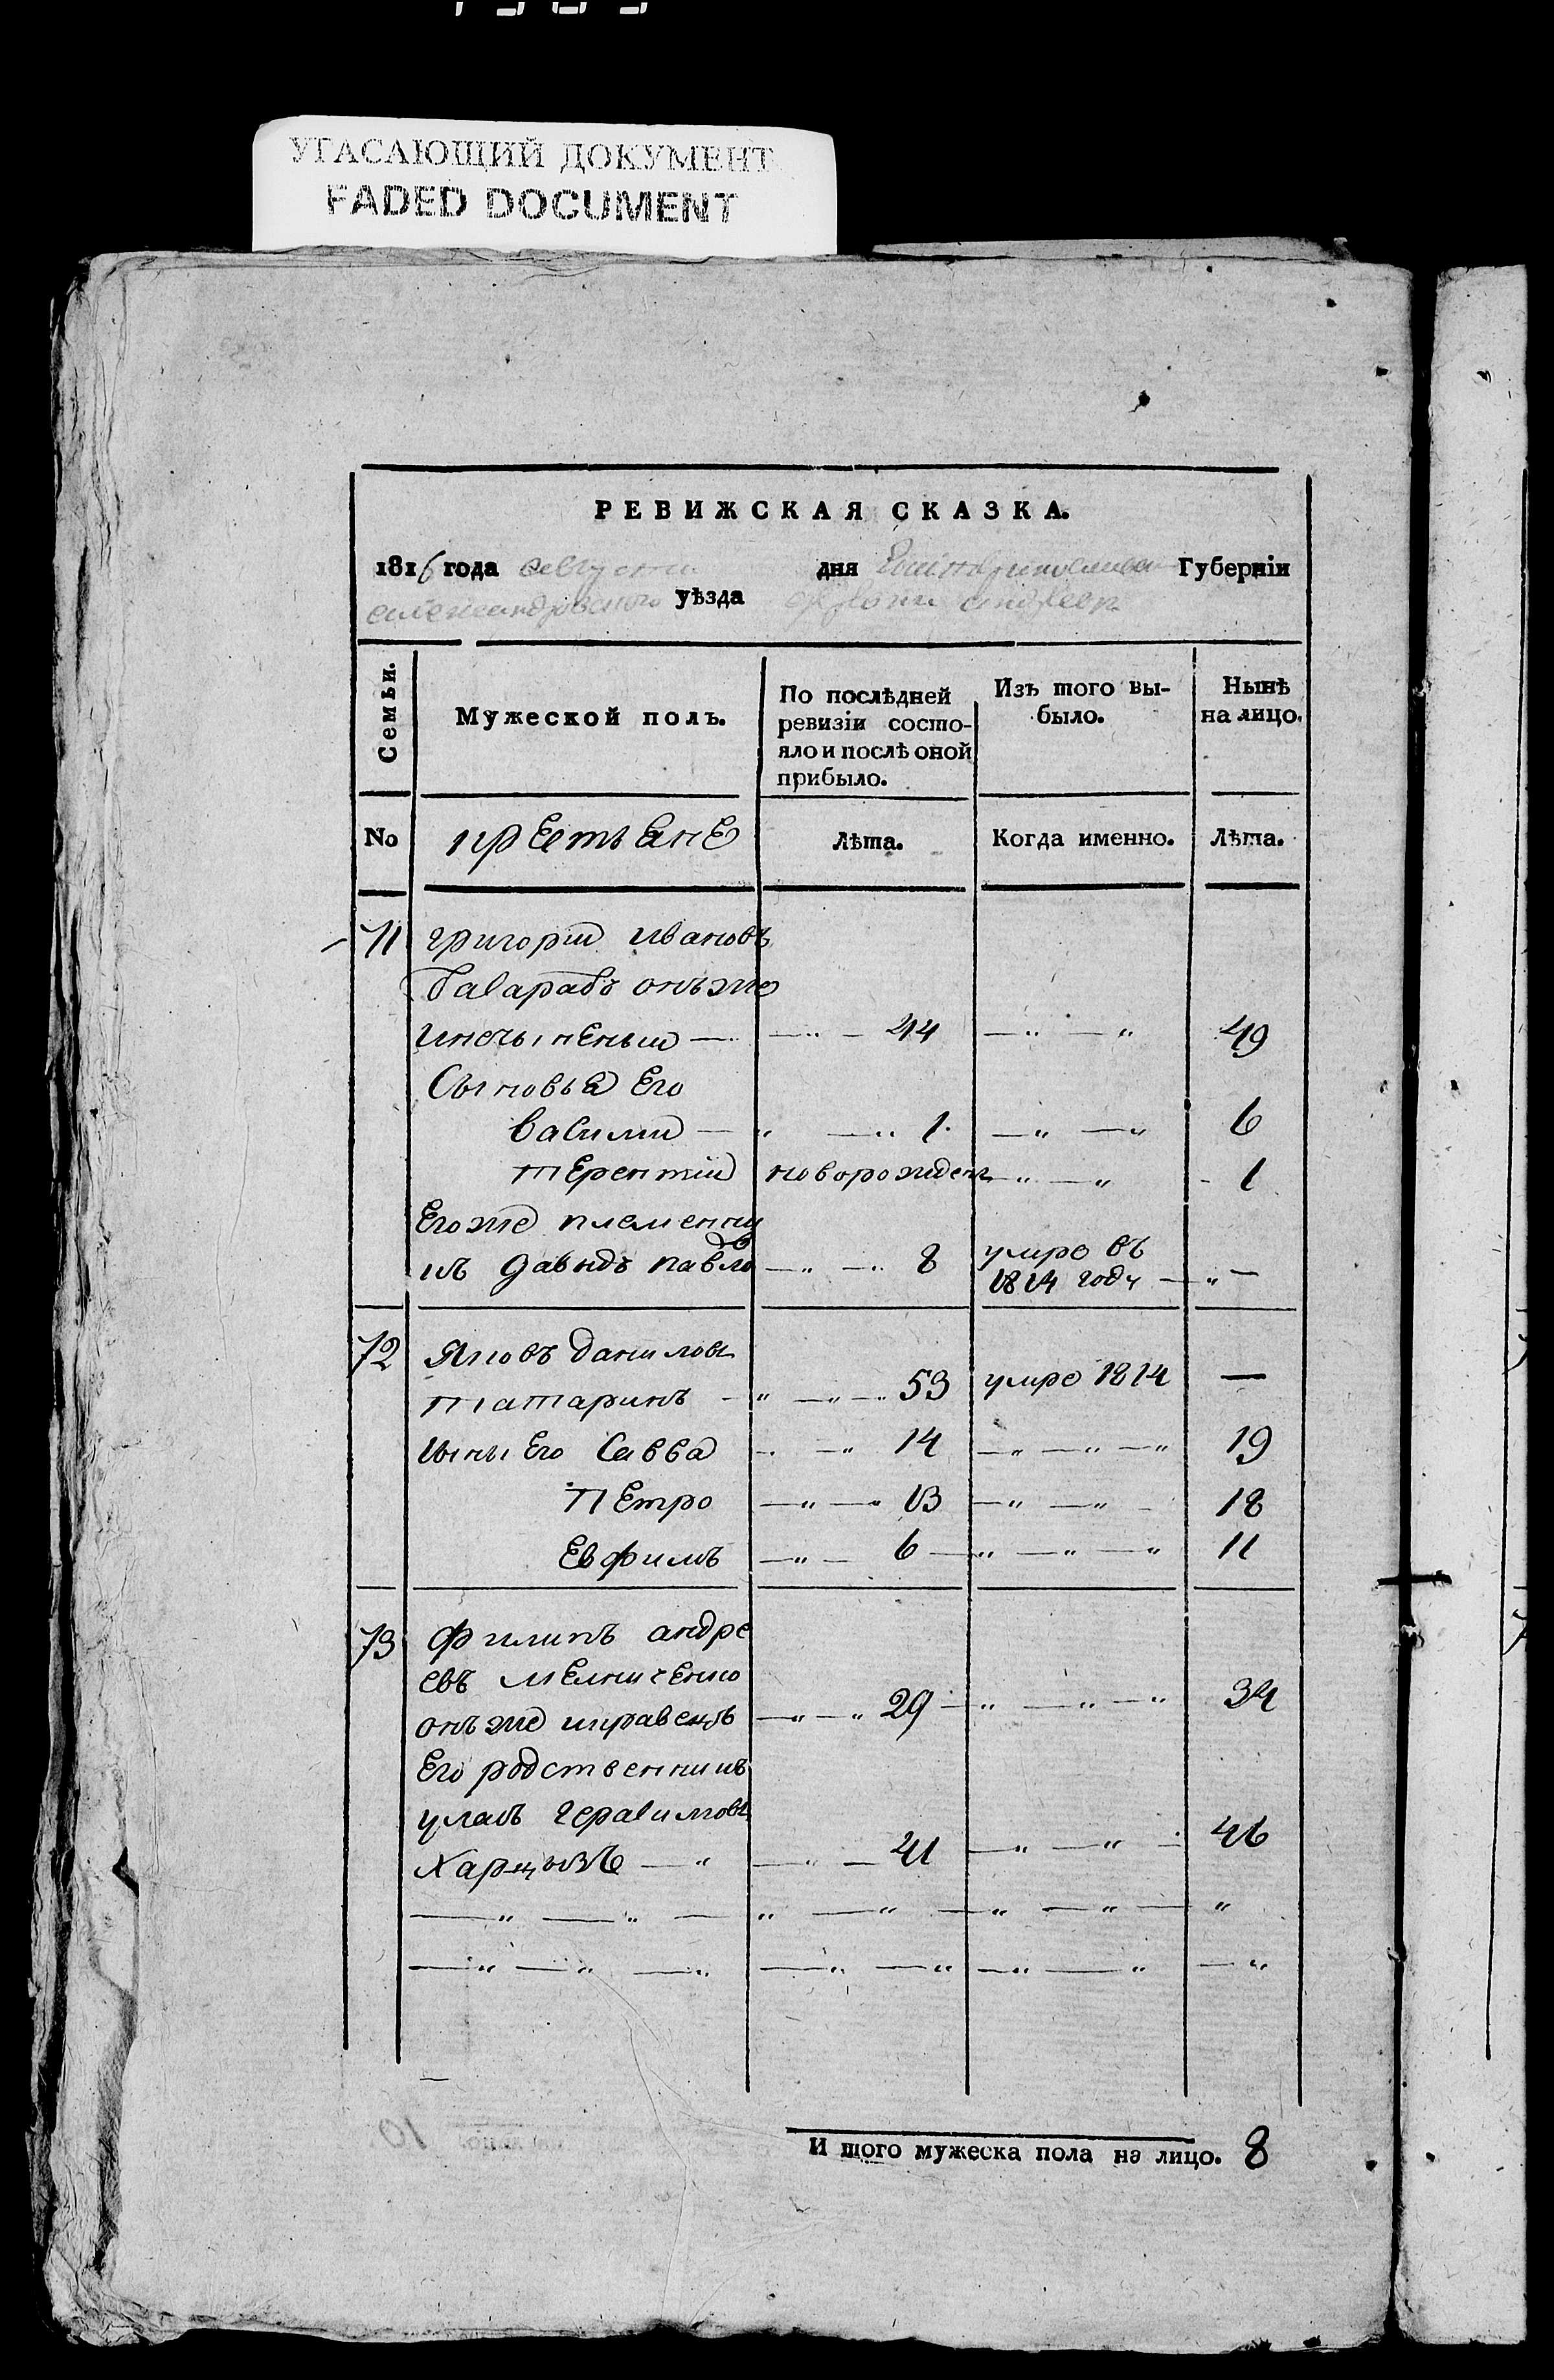 УГАСАЮЩИЙ ДОКУМЕНТ
FADED DOCUMENT
РЕВИЖСКАЯ СКАЗКА.
1816 года августа дня Екатеринославской Губерніи
александровского уѣзда
Семьи.
Мужеской полъ.
По послѣдней ревизіи состо-
яло и послѣ оной
прибыло.
Изъ того вы-
было.
Нынѣ
на лицо.
No крестьяне Лѣта. Когда именно. Лѣта.
71 григорий ивановъ
басарабъ онъ же
44 49
Сыновья Его
василий 1 6
терентий новорожденъ 1
Его же племенни
къ давидъ павло 8 умре въ
1814 году
72 Яковъ данилов
татаринъ 53 умре 1814 —
сыны Его Савва 14 19
Петро 13 18
Евфимъ 6 11
73 филипъ андре
евъ мелниченко
онъ же 29 34
Его родственникъ
уласъ герасимовъ
Харцызъ 41 46
И того мужеска пола на лицо. 8